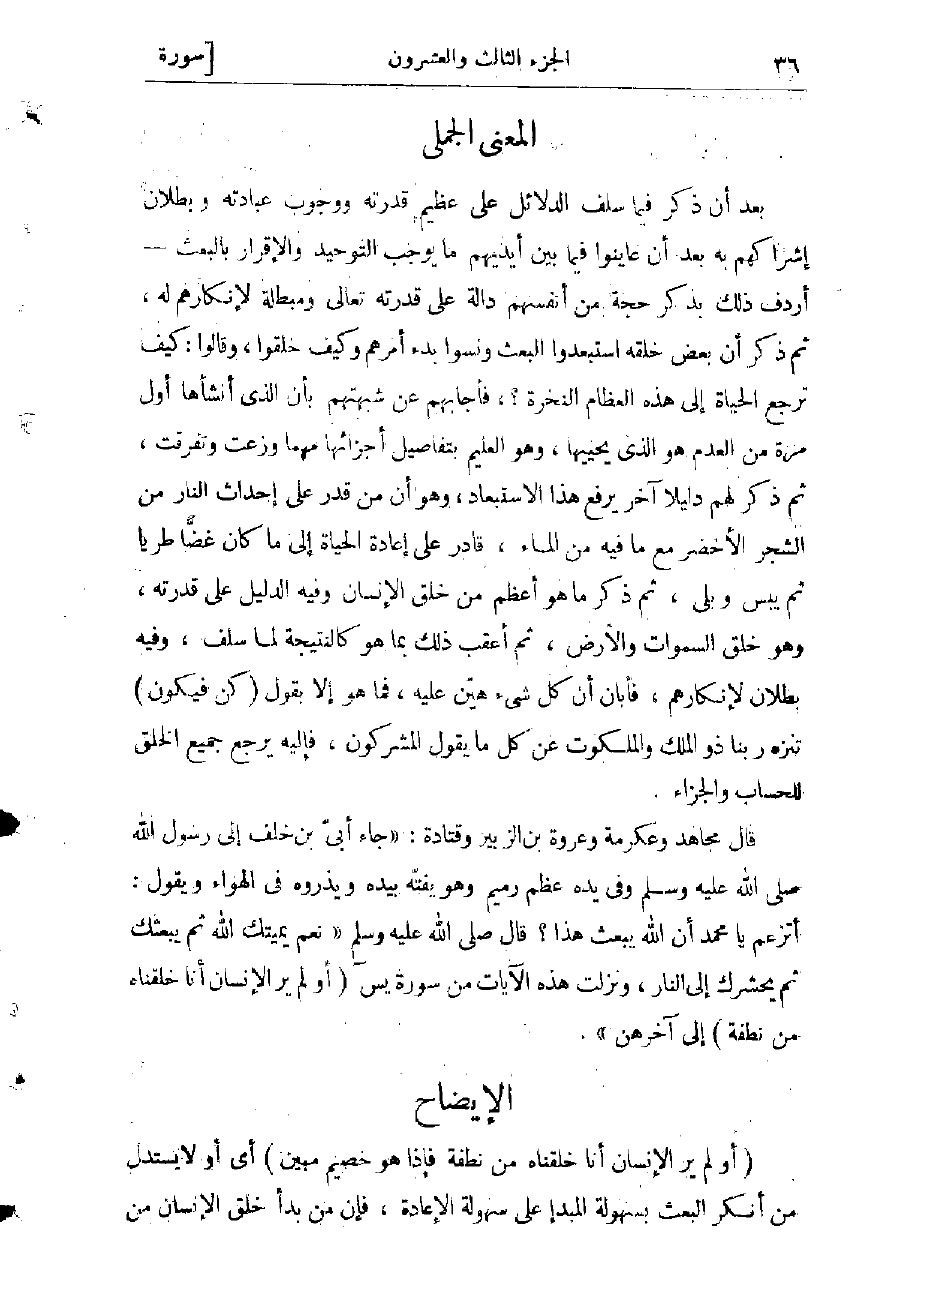 ٣٦ الجزء الثالث والعشرون [سورة
المعنى الجملى
بعد أن ذكر فيما سلف الدلائل على عظيم قدرته ووجوب عبادته وبطلان
إشراكهم به بعد أن عاينوا فيما بين أيديهم ما يوجب التوحيد والإقرار بالبعث —
أردف ذلك بذكر حجة من أنفسهم دالة على قدرته تعالى ومبطلة لإنكارهم له ،
ثم ذكر أن بعض خلقه استبعدوا البعث ونسوا بدء أمرهم وكيف خلقوا ، وقالوا : كيف
ترجع الحياة إلى هذه العظام النخرة ؟ ، فأجابهم عن شبهتهم بأن الذى أنشأها أول
مرة من العدم هو الذى يحييها ، وهو العليم بتفاصيل أجزائها مهما وزعت وتفرقت ،
ثم ذكر لهم دليلا آخر يرفع هذا الاستبعاد ، وهو أن من قدر على إحداث النار من
الشجر الأخضر مع ما فيه من الماء ، قادر على إعادة الحياة إلى ما كان غضًّا طريا
ثم يبس وبلى ، ثم ذكر ما هو أعظم من خلق الإنسان وفيه الدليل على قدرته ،
وهو خلق السموات والأرض ، ثم أعقب ذلك بما هو كالنتيجة لما سلف ، وفيه
بطلان لإنكارهم ، فأبان أن كل شىء هيّن عليه ، فما هو إلا بقول ( كن فيكون )
تنزه ربنا ذو الملك والملكوت عن كل ما يقول المشركون ، فإليه يرجع جميع الخلق
للحساب والجزاء .
قال مجاهد وعكرمة وعروة بن الزبير وقتادة : «جاء أبىّ بن خلف إلى رسول الله
صلى الله عليه وسلم وفى يده عظم رميم وهو يفتّه بيده ويذروه فى الهواء ويقول :
أتزعم يا محمد أن الله يبعث هذا ؟ قال صلى الله عليه وسلم « نعم يميتك الله ثم يبعثك
ثم يحشرك إلى النار ، ونزلت هذه الآيات من سورة يسٓ ( أو لم ير الإنسان أنا خلقناه
من نطفة ) إلى آخرهن » .
الإيضاح
( أو لم ير الإنسان أنا خلقناه من نطفة فإذا هو خصيم مبين ) أى أو لا يستدل
من أنكر البعث بسهولة المبدإ على سهولة الإعادة ، فإن من بدأ خلق الإنسان من